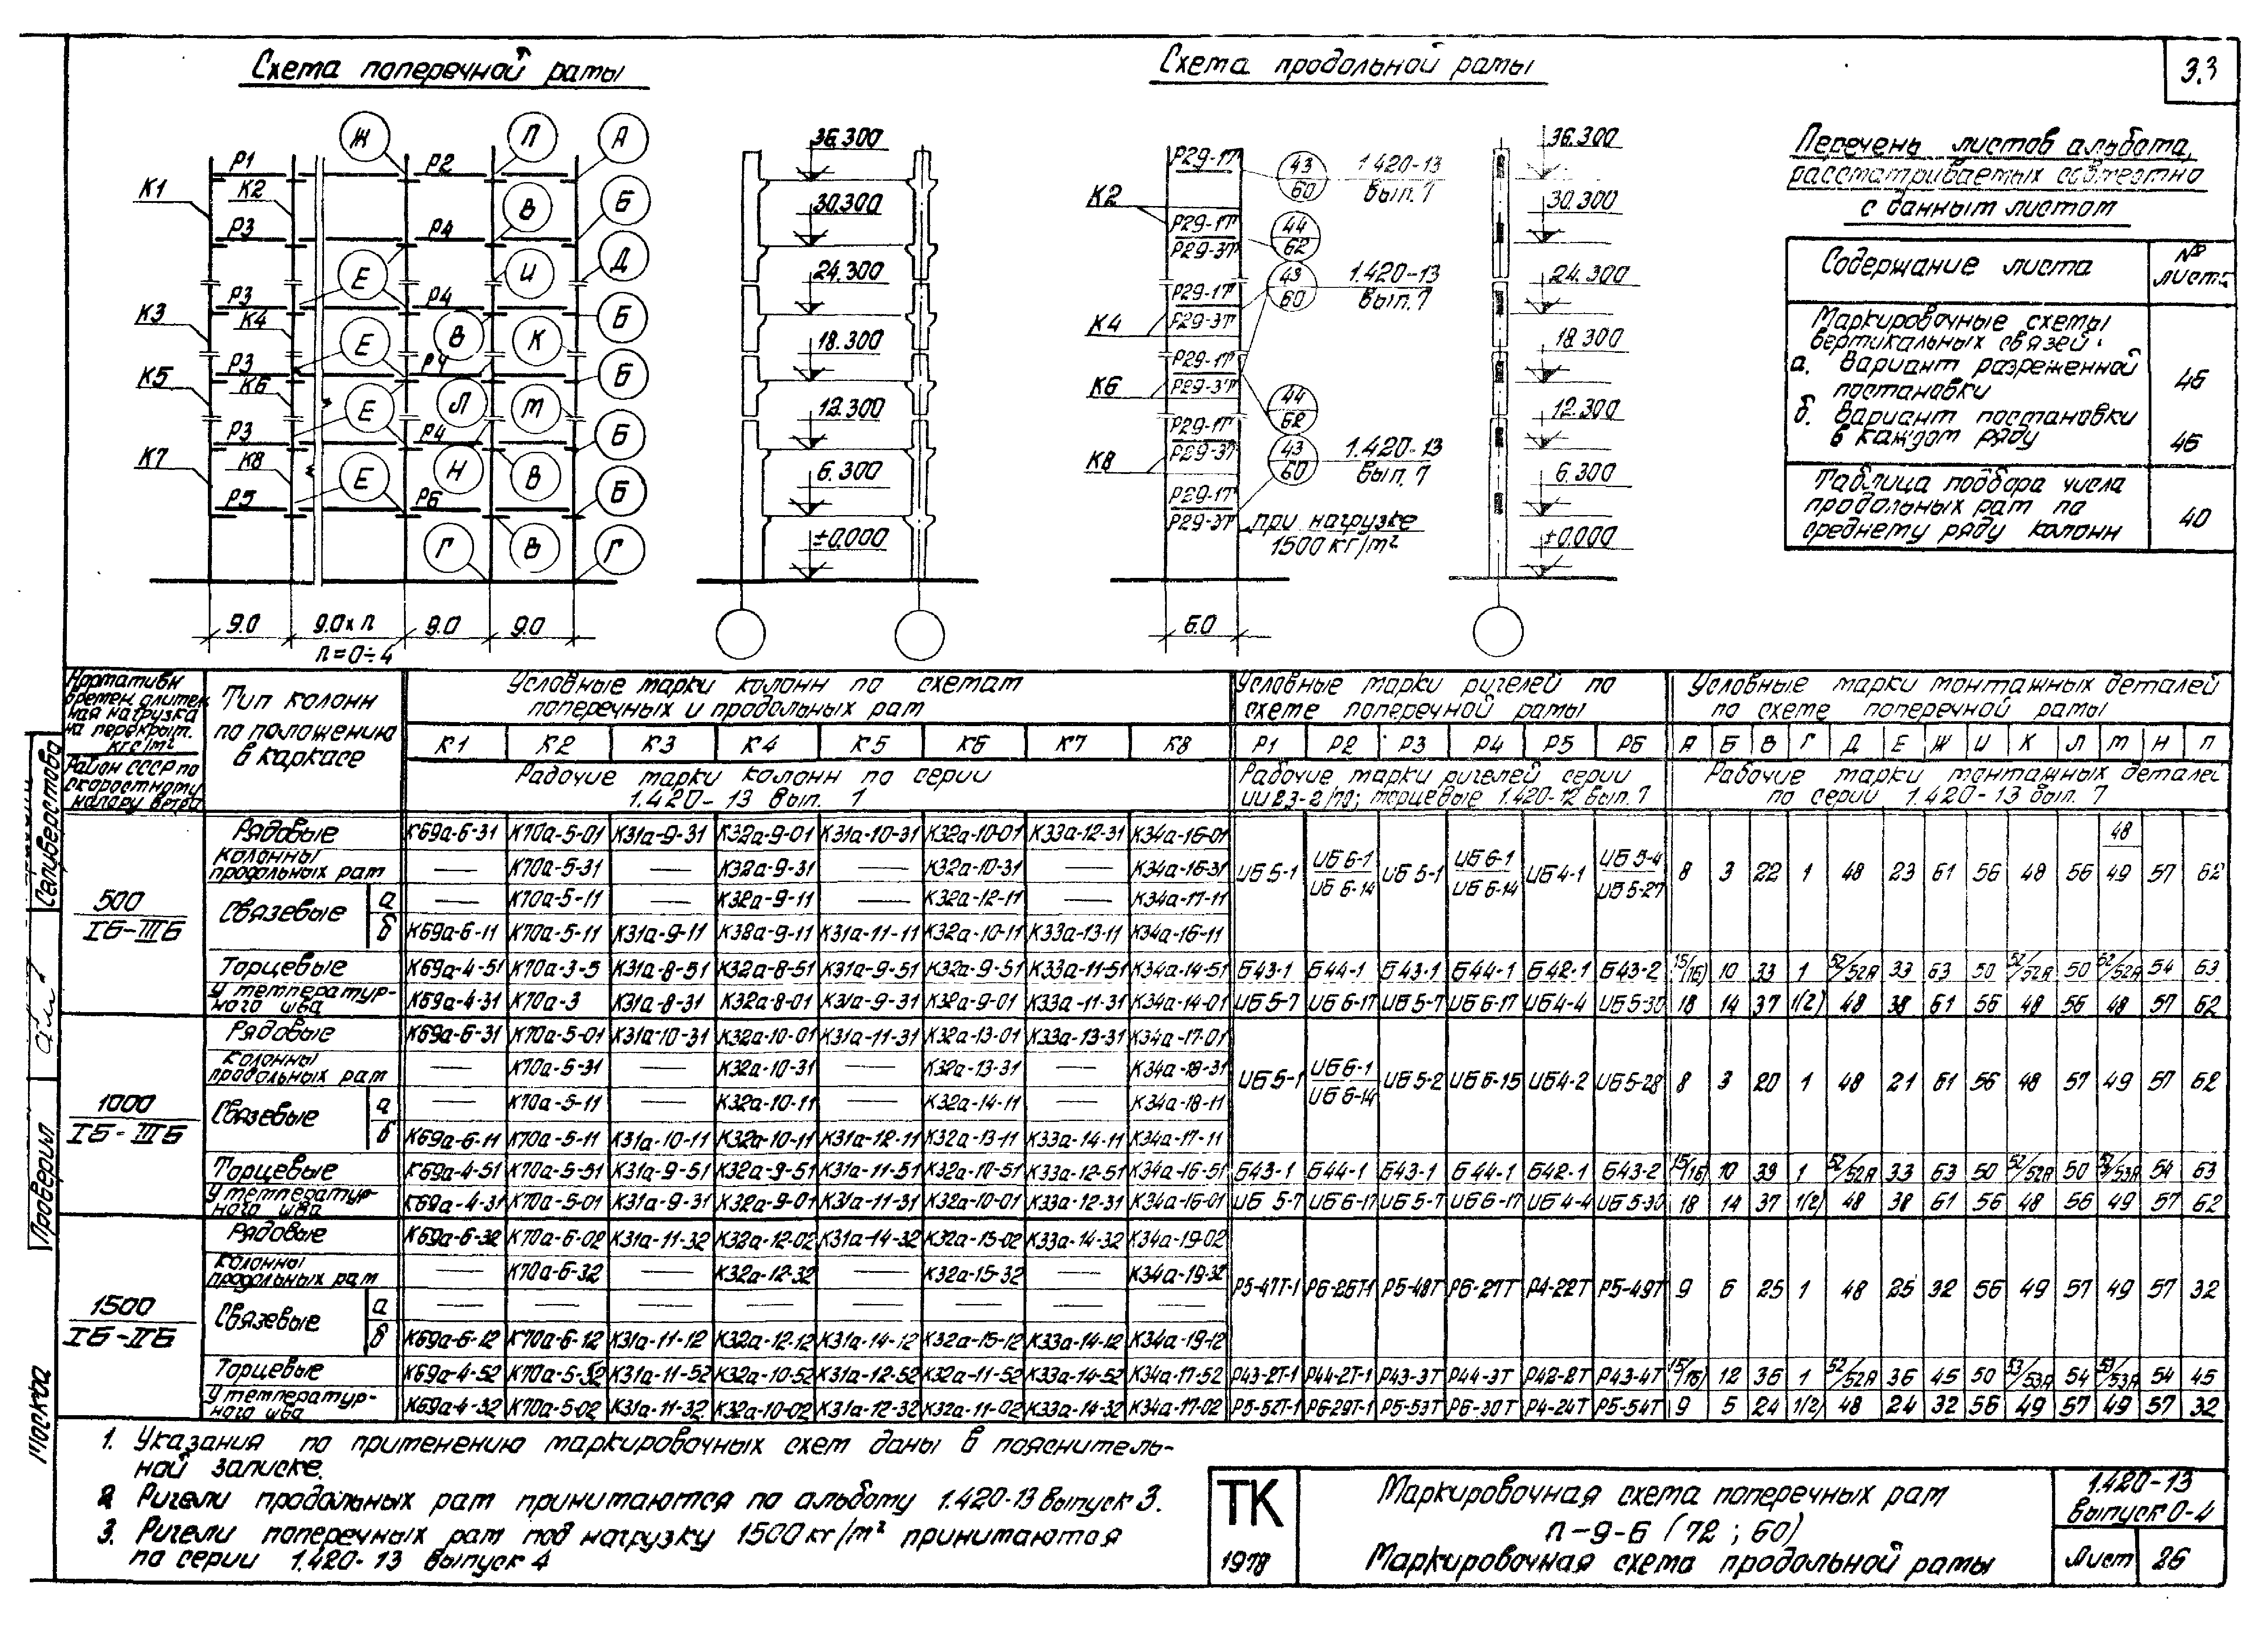 Схема поперечной рамы
Схема продольной рамы
3.3
Ж
П
А
Р1
Р2
К1
К2
В
Б
Р3
Р4
Е
И
Д
Р3
Р4
К3
К4
В
К
Б
Е
Р3
Р4
К5
К6
Е
Л
М
Б
Р3
Р4
Б
К7
К8
Е
Н
В
Б
Р5
Р6
Г
В
Г
9.0
9.0хп
9.0
9.0
п=0÷4
36.300
30.300
24.300
18.300
12.300
6.300
±0.000
Р29-1т
43
60
1.420-13
вып. 7
К2
Р29-1т
Р29-3т
44
62
Р29-1т
Р29-3т
43
60
1.420-13
вып. 7
К4
Р29-1т
Р29-3т
К6
44
62
Р29-1т
Р29-3т
43
60
1.420-13
вып. 7
К8
Р29-1т
Р29-3т
при нагрузке
1500 кг/м²
6.0
36.300
30.300
24.300
18.300
12.300
6.300
±0.000
Перечень листов альбома,
рассматриваемых совместно
с данным листом
Содержание листа
№ листа
Маркировочные схемы
вертикальных связей:
а. Вариант разреженной
постановки
45
б. Вариант постановки
в каждом ряду
46
Таблица подбора числа
продольных рам по
среднему ряду колонн
40
Нормативн
времен. длитель
ная нагрузка
на перекрыт.
кгс/м²
Район СССР по
скоростному
напору ветра
Тип колонн
по положению
в каркасе
Условные марки колонн по схемам
поперечных и продольных рам
Условные марки ригелей по
схеме поперечной рамы
Условные марки монтажных деталей
по схеме поперечной рамы
К1 К2 К3 К4 К5 К6 К7 К8 Р1 Р2 Р3 Р4 Р5 Р6 А Б В Г Д Е Ж И К Л М Н П
Рабочие марки колонн по серии
1.420-13 вып. 1
Рабочие марки ригелей серии
ИИ23-2/70; торцевые 1.420-12 вып. 7
Рабочие марки монтажных деталей
по серии 1.420-13 вып. 7
500
IБ-IIIБ
Рядовые К69а-6-31 К70а-5-01 К31а-9-31 К32а-9-01 К31а-10-31 К32а-10-01 К33а-12-31 К34а-16-01
Колонны
продольных рам — К70а-5-31 — К32а-9-31 — К32а-10-31 — К34а-16-31
Связевые
а — К70а-5-11 — К32а-9-11 — К32а-12-11 — К34а-17-11
б К69а-6-11 К70а-5-11 К31а-9-11 К32а-9-11 К31а-11-11 К32а-10-11 К33а-13-11 К34а-16-11
ИБ5-1 ИБ6-1/ИБ6-14 ИБ5-1 ИБ6-1/ИБ6-14 ИБ4-1 ИБ5-4/ИБ5-27 8 3 22 1 48 23 61 56 48 56 48/49 57 62
Торцевые К69а-4-51 К70а-3-5 К31а-8-51 К32а-8-51 К31а-9-51 К32а-9-51 К33а-11-51 К34а-14-51 Б43-1 Б44-1 Б43-1 Б44-1 Б42-1 Б43-2 15/(16) 10 33 1 52/52А 33 63 50 52/52А 50 52/52А 54 63
У температур-
ного шва К69а-4-31 К70а-3 К31а-8-31 К32а-8-01 К31а-9-31 К32а-9-01 К33а-11-31 К34а-14-01 ИБ5-7 ИБ6-17 ИБ5-7 ИБ6-17 ИБ4-4 ИБ5-30 18 14 37 1(2) 48 38 61 56 48 56 48 57 62
1000
IБ-IIIБ
Рядовые К69а-6-31 К70а-5-01 К31а-10-31 К32а-10-01 К31а-11-31 К32а-13-01 К33а-13-31 К34а-17-01
Колонны
продольных рам — К70а-5-31 — К32а-10-31 — К32а-13-31 — К34а-18-31
Связевые
а — К70а-5-11 — К32а-10-11 — К32а-14-11 — К34а-18-11
б К69а-6-11 К70а-5-11 К31а-10-11 К32а-10-11 К31а-12-11 К32а-13-11 К33а-14-11 К34а-17-11
ИБ5-1 ИБ6-1/ИБ6-14 ИБ5-2 ИБ6-15 ИБ4-2 ИБ5-28 8 3 20 1 48 21 61 56 48 57 49 57 62
Торцевые К69а-4-51 К70а-5-51 К31а-9-51 К32а-9-51 К31а-11-51 К32а-10-51 К33а-12-51 К34а-16-51 Б43-1 Б44-1 Б43-1 Б44-1 Б42-1 Б43-2 15/(16) 10 33 1 52/52А 33 63 50 52/52А 50 53/53А 54 63
У температур-
ного шва К69а-4-31 К70а-5-01 К31а-9-31 К32а-9-01 К31а-11-31 К32а-10-01 К33а-12-31 К34а-16-01 ИБ5-7 ИБ6-17 ИБ5-7 ИБ6-17 ИБ4-4 ИБ5-30 18 14 37 1(2) 48 38 61 56 48 56 49 57 62
1500
IБ-IIБ
Рядовые К69а-6-32 К70а-6-02 К31а-11-32 К32а-12-02 К31а-14-32 К32а-15-02 К33а-14-32 К34а-19-02
Колонны
продольных рам — К70а-6-32 — К32а-12-32 — К32а-15-32 — К34а-19-32
Связевые
а — — — — — — — —
б К69а-6-12 К70а-6-12 К31а-11-12 К32а-12-12 К31а-14-12 К32а-15-12 К33а-14-12 К34а-19-12
Р5-47Т-1 Р6-26Т-1 Р5-48Т Р6-27Т Р4-22Т Р5-49Т 9 6 25 1 48 25 32 56 49 57 49 57 32
Торцевые К69а-4-52 К70а-5-52 К31а-11-52 К32а-10-52 К31а-12-52 К32а-11-52 К33а-14-52 К34а-17-52 Р43-2Т-1 Р44-2Т-1 Р43-3Т Р44-3Т Р42-2Т Р43-4Т 15/(16) 12 36 1 52/52А 36 45 50 53/53А 54 53/53А 54 45
У температур-
ного шва К69а-4-32 К70а-5-02 К31а-11-32 К32а-10-02 К31а-12-32 К32а-11-02 К33а-14-32 К34а-17-02 Р5-52Т-1 Р6-29Т-1 Р5-53Т Р6-30Т Р4-24Т Р5-54Т 9 5 24 1(2) 48 24 32 56 49 57 49 57 32
1. Указания по применению маркировочных схем даны в пояснитель-
ной записке.
2. Ригели продольных рам принимаются по альбому 1.420-13 выпуск 3.
3. Ригели поперечных рам под нагрузку 1500 кг/м² принимаются
по серии 1.420-13 выпуск 4
ТК
1978
Маркировочная схема поперечных рам
п-9-6 (72; 60)
Маркировочная схема продольной рамы
1.420-13
выпуск 0-4
Лист 26
Селиверстова
Проверил
Москва